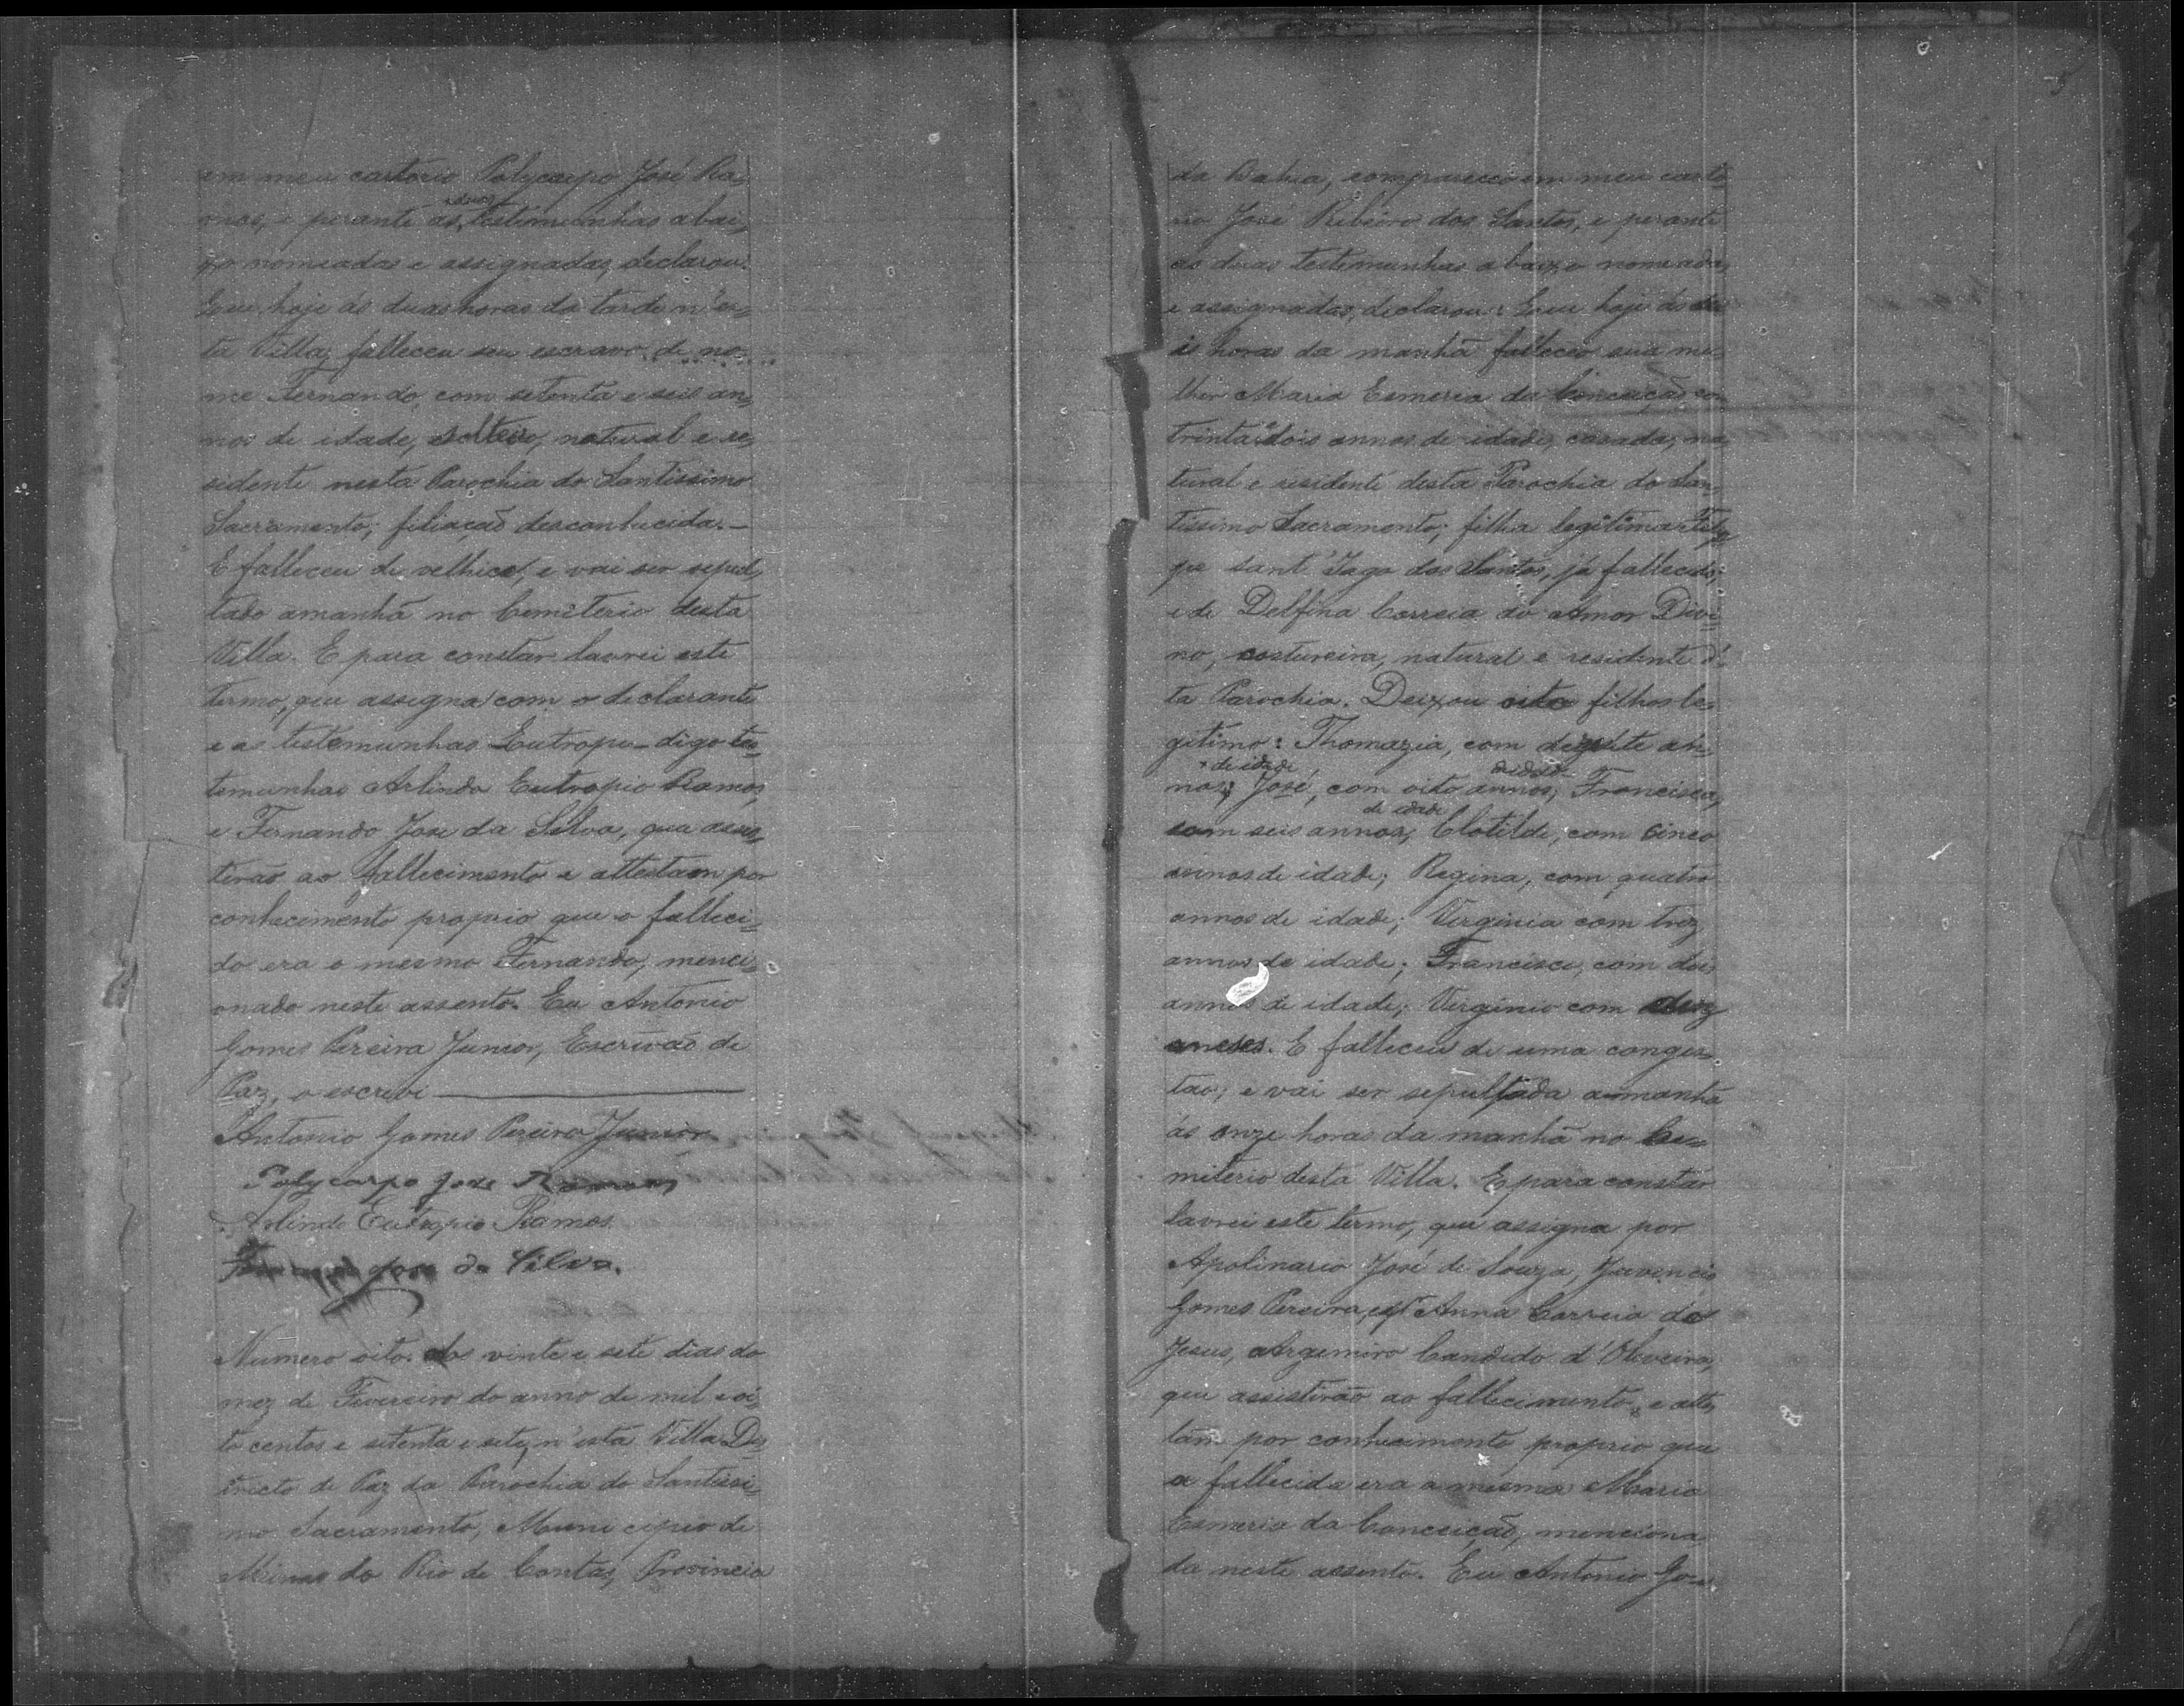 em meu cartorio Polycarpo José Ra-
mos, e perante as duas testemunhas abai-
xo nomeadas e assignadas, declarou:
Que hoje ás duas horas da tarde n'es-
ta Villa, falleceu seu escravo de no-
me Fernando, com setenta e seis an-
nos de idade, solteiro, natural e re-
sidente nesta Parochia do Santissimo
Sacramento; filiação desconhecida.—
E falleceu de velhice, e vai ser sepul-
tado amanhã no Cemiterio desta
Villa. E para constar lavrei este
termo, que assigna com o declarante
e as testemunhas Eutropio digo tes-
temunhas Arlindo Eutropio Ramos,
e Fernando José da Silva, que assis-
tirão ao fallecimento e attestam por
conhecimento proprio que o falleci-
do era o mesmo Fernando, menci-
onado neste assento. Eu Antonio
Gomes Pereira Junior, Escrivão de
Paz, o escrevi
Antonio Gomes Pereira Junior
Polycarpo José Ramos
Arlindo Eutropio Ramos
José da Silva.
Numero oito. Aos vinte e sete dias do
mez de Fevereiro do anno de mil e oi-
to centos e setenta e sete, n'esta Villa Dis-
tricto de Paz da Parochia do Santissi-
mo Sacramento, Municipio de
Minas do Rio de Contas, Provincia
5
da Bahia, compareceo em meu carto-
rio José Ribeiro dos Santos, e perante
as duas testemunhas abaixo nomeadas
e assignadas, declarou: Que hoje ás
horas da manhã falleceo sua mu-
lher Maria Esmeria da Conceição co
trinta e dois annos de idade, casada, na-
tural e residente desta Parochia do San-
tissimo Sacramento; filha legitima Felip-
pe Sant'Iago dos Santos, já fallecido,
e de Delfina Correia do Amor Divi-
no, costureira, natural e residente d'
ta Parochia. Deixou oito filhos le-
gitimo: Thomazia, com dezesete an-
nos de idade; José, com oito annos didade; Francisca,
com seis annos de idade; Clotilde, com cinco
annos de idade; Regina, com quatro
annos de idade; Virginia com trez
annos de idade; Francisco, com dois
annos de idade; Virginio com
mezes. E falleceu de uma conges-
tão; e vai ser sepultada amanhã
ás onze horas da manhã no Ce-
miterio desta Villa. E para constar
lavrei este termo, que assigna por
Apolinario José de Souza, Juvencio
Gomes Pereira, Anna Correia de
Jesus, Argemiro Candido d'Oliveira,
que assistirão ao fallecimento, e attes-
tam por conhecimento proprio que
a fallecida era a mesma Maria
Esmeria da Conceição, menciona
da neste assento. Eu Antonio Go-